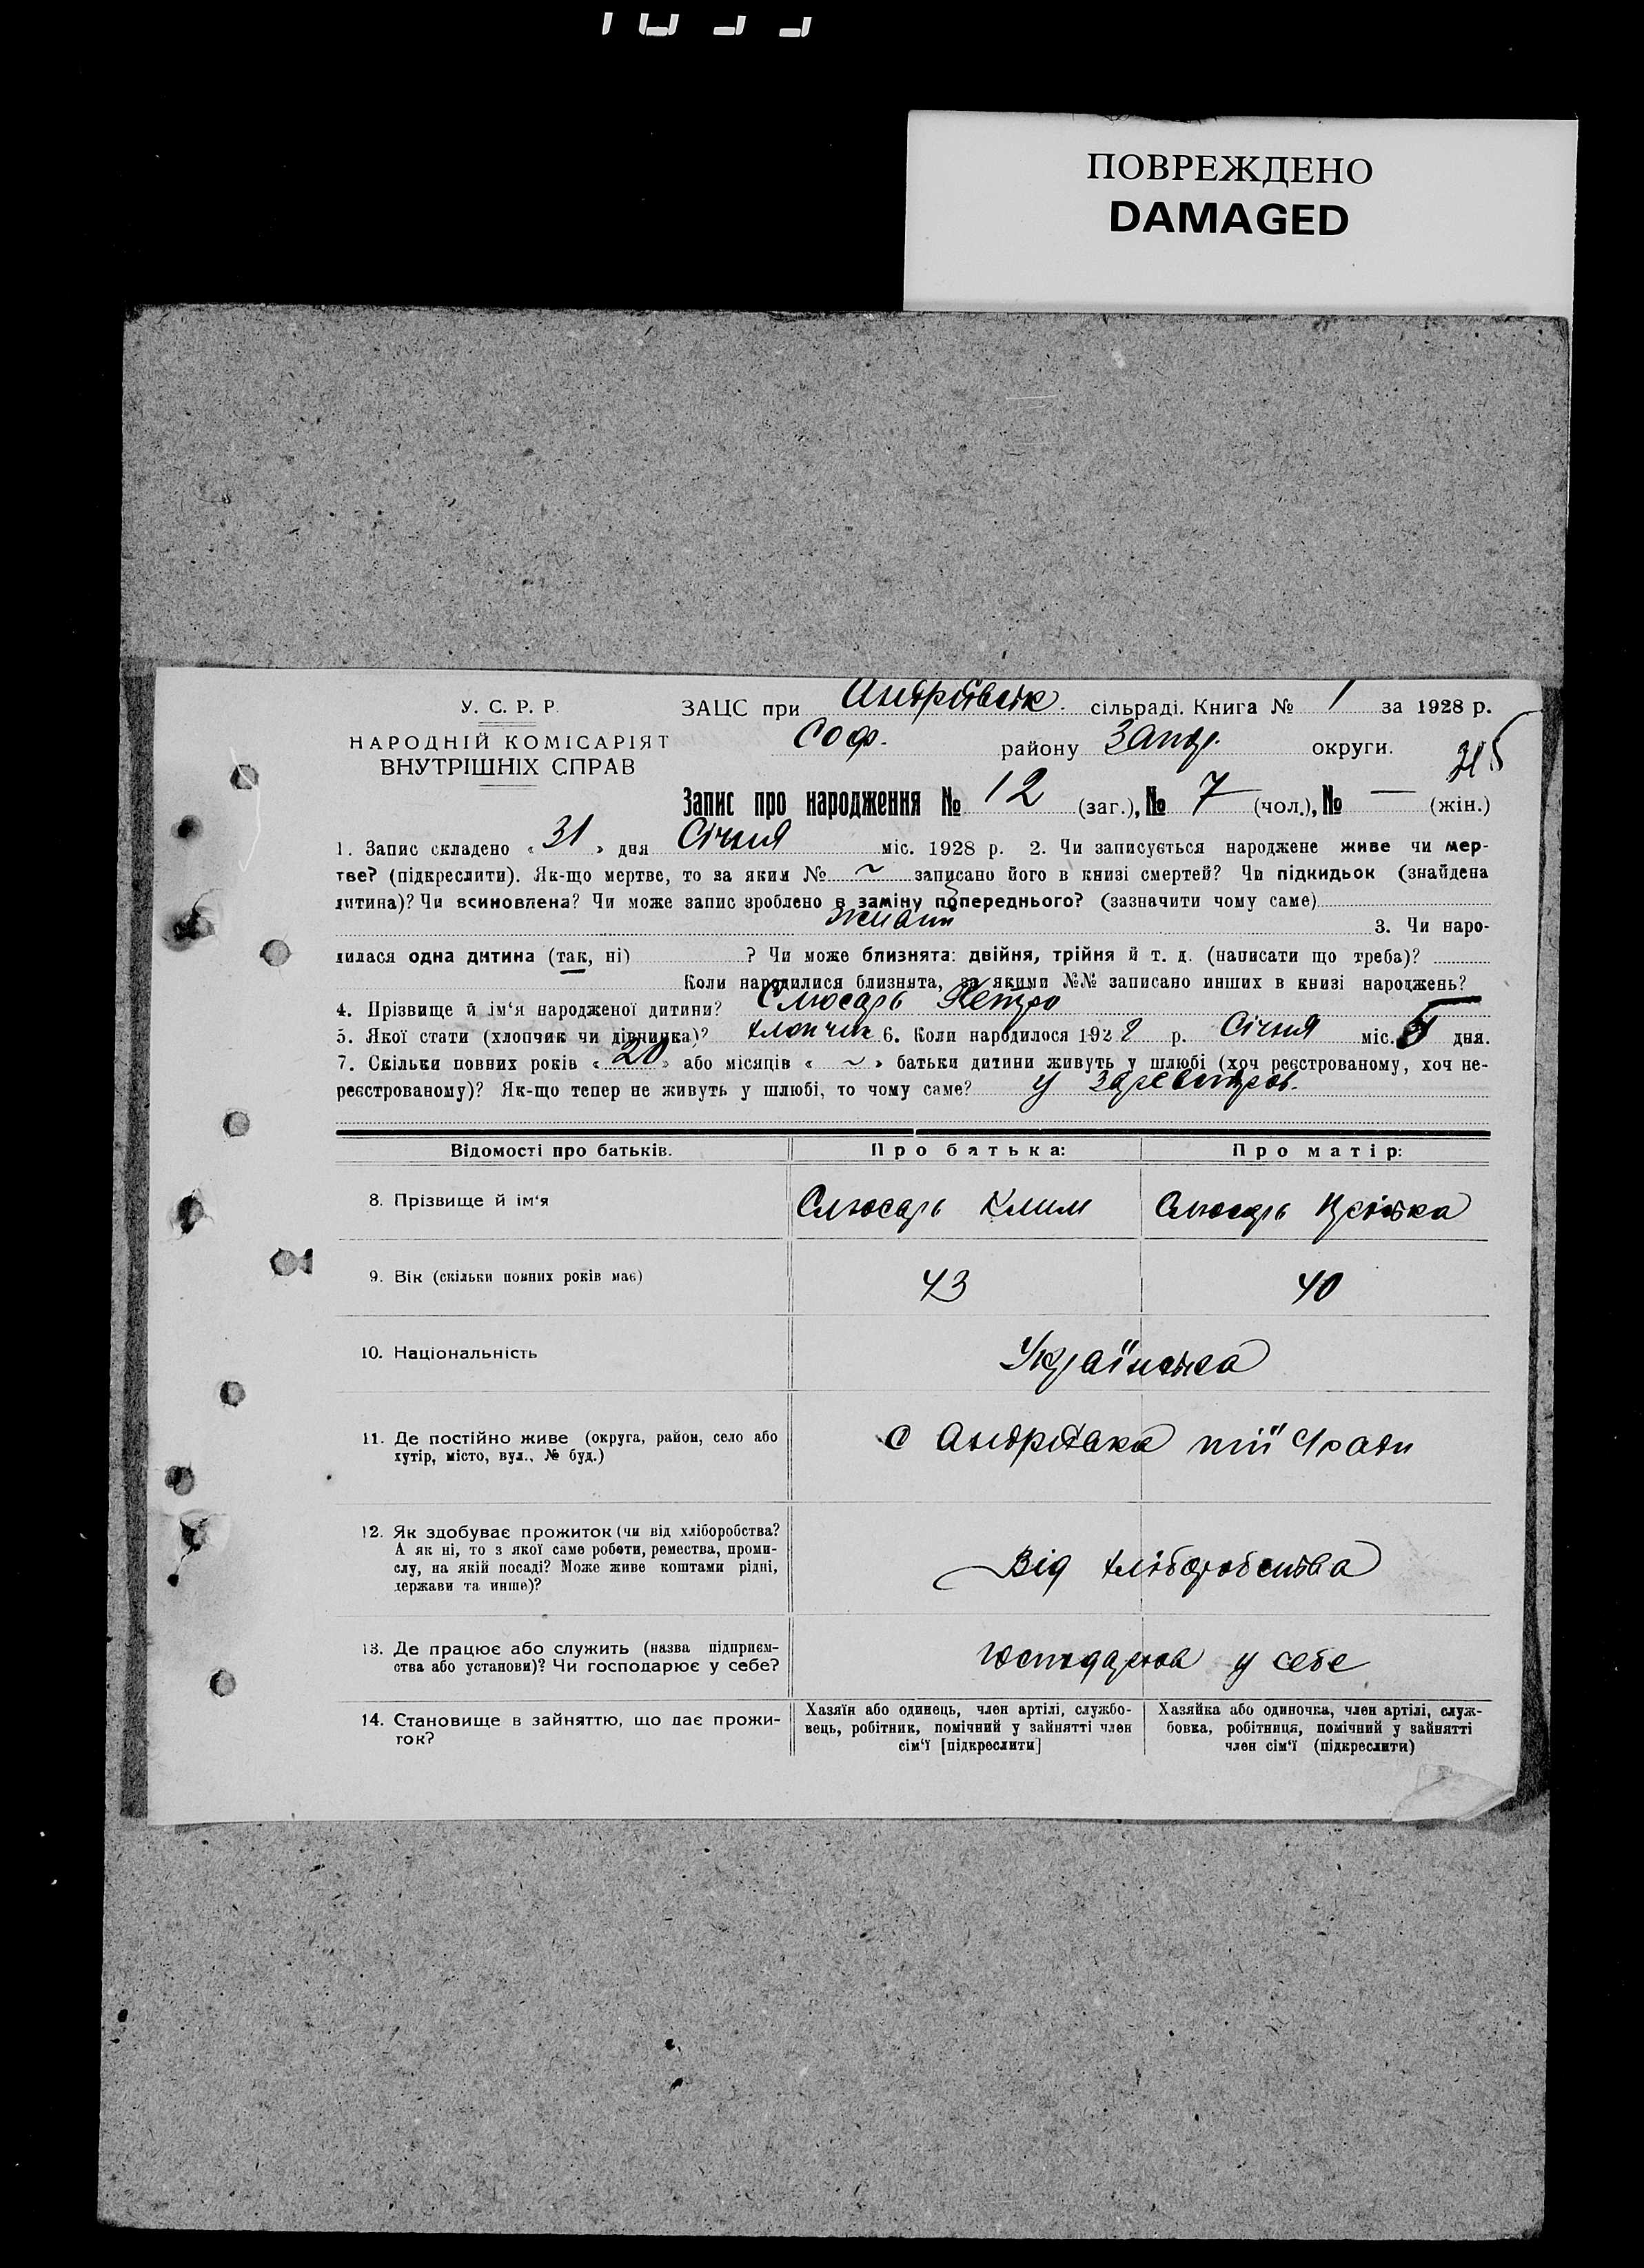 ПОВРЕЖДЕНО
DAMAGED
У. С. Р. Р.
НАРОДНІЙ КОМІСАРІЯТ
ВНУТРІШНІХ СПРАВ
ЗАЦС при Андріївськ. сільраді. Книга № 1 за 1928 р.
Соф. району Запор. округи.
Запис про народження № 12 (заг.), № 7 (чол.), № — (жін.)
1. Запис складено « 31 » дня Січня міс. 1928 р. 2. Чи записується народжене живе чи мер-
тве? (підкреслити). Як-що мертве, то за яким № ~ записано його в книзі смертей? Чи підкидьок (знайдена
дитина)? Чи всиновлена? Чи може запис зроблено в заміну попереднього? (зазначити чому саме)
3. Чи наро-
дилася одна дитина (так, ні) ? Чи може близнята: двійня, трійня й т. д. (написати що треба)?
Коли народилися близнята, за якими №№ записано инших в книзі народжень?
4. Прізвище й ім'я народженої дитини? Слюсарь Петро
5. Якої стати (хлопчик чи дівчинка)? хлопчик 6. Коли народилося 1928 р. Січня міс. дня.
7. Скільки повних років « 20 » або місяців « ~ » батьки дитини живуть у шлюбі (хоч реєстрованому, хоч не-
реєстрованому)? Як-що тепер не живуть у шлюбі, то чому саме? у зарегистров.
Відомості про батьків. Про батька: Про матір:
8. Прізвище й ім'я Слюсарь Клим Слюсарь
9. Вік (скільки повних років має) 43 40
10. Національність Українська
11. Де постійно живе (округа, район, село або
хутір, місто, вул., № буд.)
с Андріївка тії ради
12. Як здобуває прожиток (чи від хліборобства?
А як ні, то з якої саме роботи, ремества, проми-
слу, на якій посаді? Може живе коштами рідні,
держави та инше)?
Від хліборобства
13. Де працює або служить (назва підприєм-
ства або установи)? Чи господарює у себе?
у себе
14. Становище в зайняттю, що дає прожи-
ток?
Хазяїн або одинець, член артілі, службо-
вець, робітник, помічний у зайнятті член
сім'ї [підкреслити]
Хазяйка або одиночка, член артілі, служ-
бовка, робітниця, помічний у зайнятті
член сім'ї (підкреслити)